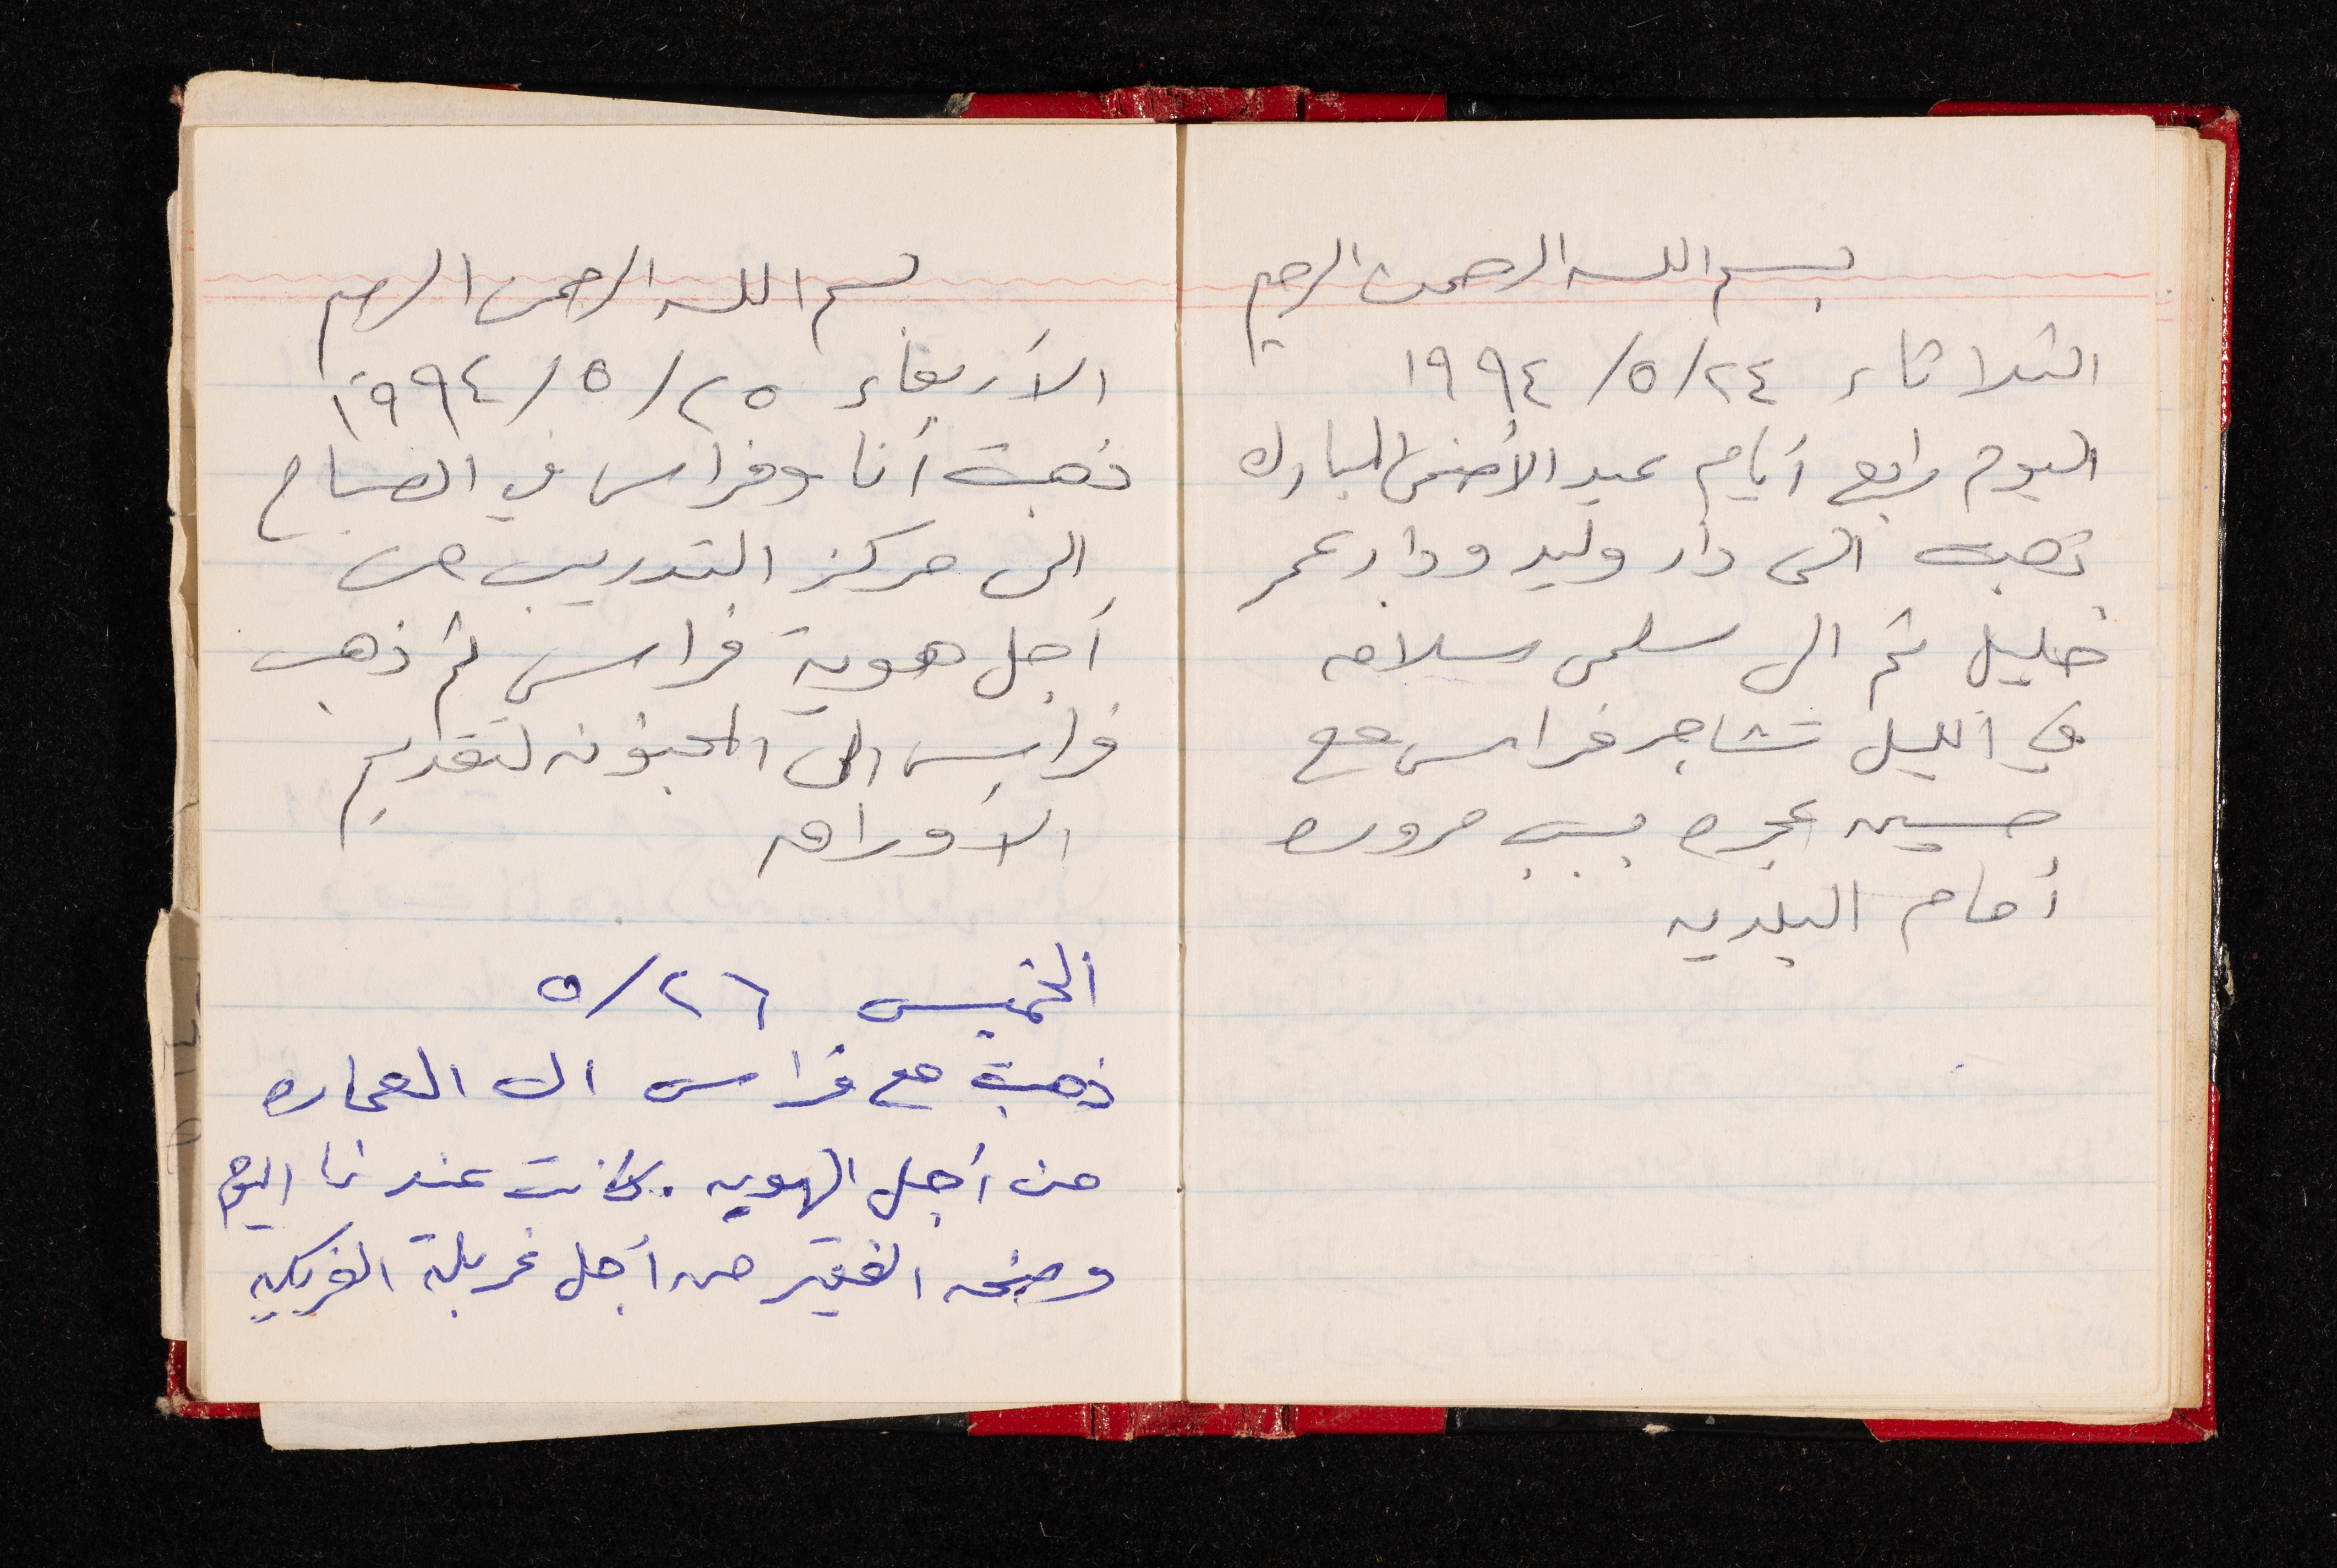 بسم الله الرحمن الرحيم
الثلاثاء ٢٤/٥/١٩٩٤
اليوم رابع أيام عيد الأضحى المبارك
ذهبت الى دار وليد ودار عمر
خليل ثم الى سلمى سلامه
في الليل تشاجر فراس مع
حسين عجره بسبب مروره
أمام البلديه
بسم الله الرحمن الرحيم
الأربعاء ٢٥/٥/١٩٩٤
ذهبت أنا وفراس في الصباح
إلى مركز التدريب من
أجل هوية فراس ثم ذهب
فراس الى لتقديم
الأوراق
الخميس ٢٦/٥
ذهبت مع فراس الى العماره
من أجل الهويه. كانت عندنا اليوم
الفقير من أجل غربلة الفريكيه